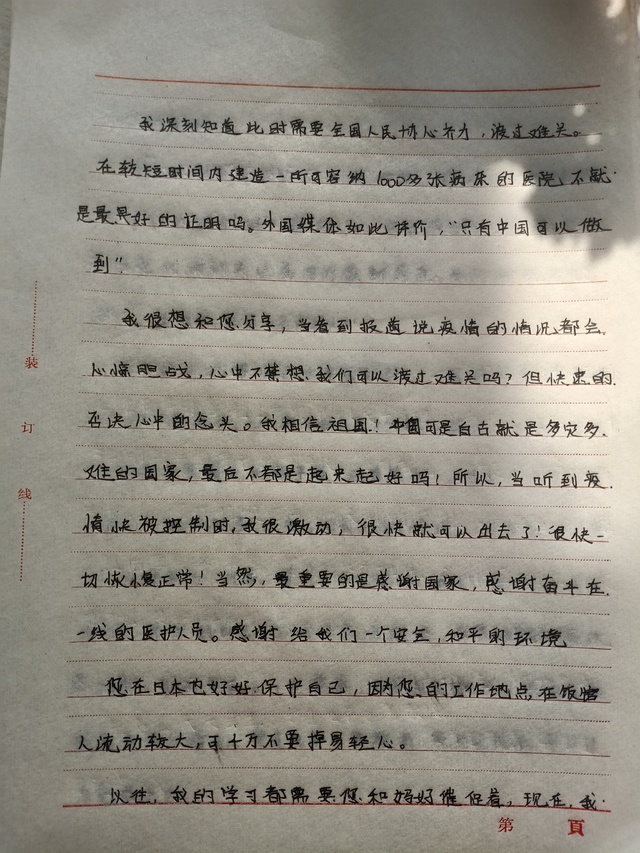 我深刻知道此时需要全国人民协心齐力，渡过难关。
在较短时间内建造一所可容纳1000多张病床的医院，不就
是最界好的证明吗。外国媒体如此评价，"只有中国可以做
到"
我很想和您分享，当看到报道说疫情的情况都会
心惊胆战，心中不禁想我们可以渡过难关吗？但快速的
否决心中的念头。我相信祖国！中国可是自古就是多灾多
难的国家，最后不都是起来起好吗！所以，当听到疫
情快被控制时，我很激动，很快就可以出去了！很快一
切恢复正常！当然，最重要的是感谢国家，感谢奋斗在
一线的医护人员。感谢给我们一个安全，和平的环境
您在日本也好好保护自己，因为您的工作地点在饭馆
人流动较大，可千万不要掉易轻心。
以往，我的学习都需要您和妈妈催促着，现在，我
装
订
线
第 頁